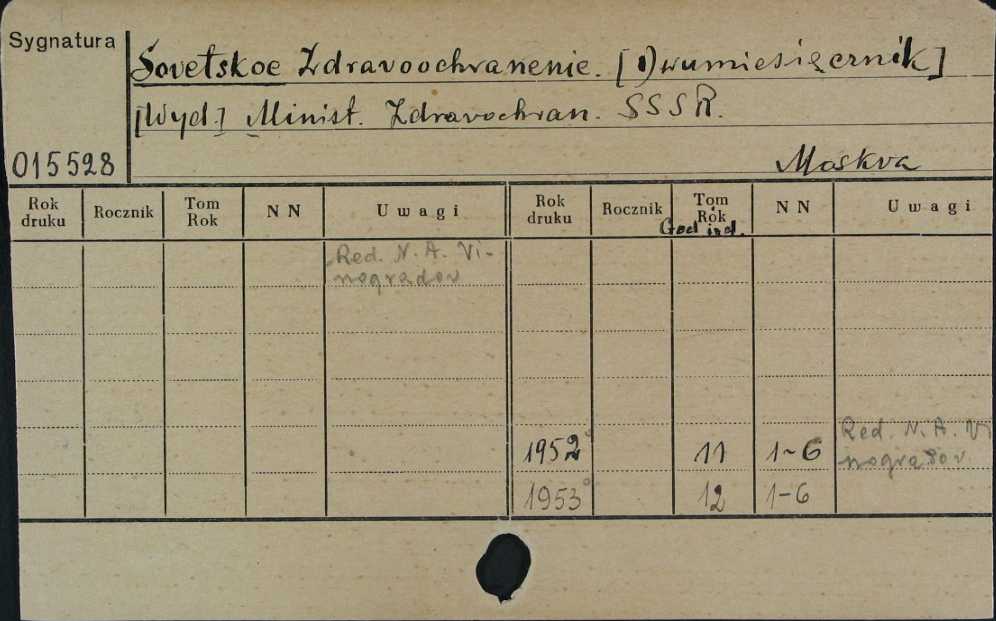 Sygnatura
Sovetskoe Zdravoochranenie. [Dwumiesięcznik]
[Wyd.] Minist. Zdravochran. SSSR.
015528
Moskva
Rok druku Rocznik Tom Rok NN Uwagi Rok druku Rocznik Tom i Rok NN Uwagi
God izd.
Red. N. A. Vi-
nogradov
Red. N. A. Vi
1952 11 1-6 nogradov
1953 12 1-6